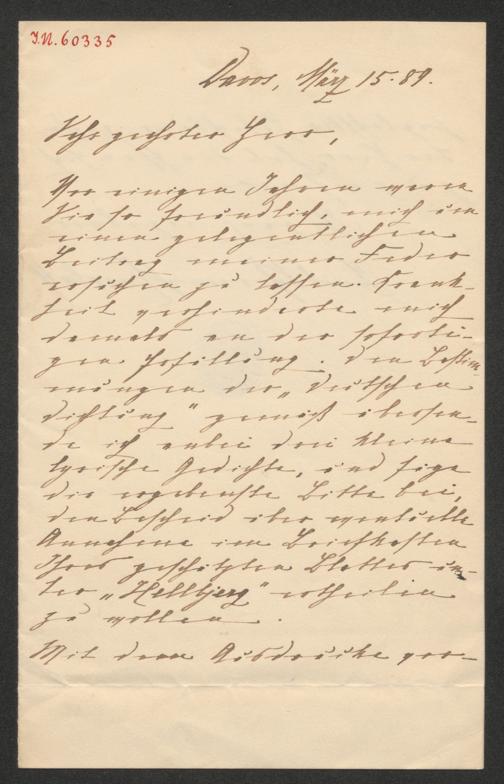 I.N. 60335
Davos, März 15. 89.
Sehr geehrter Herr,
Vor einigen Jahren waren
Sie so freundlich, mich um
einen gelegentlichen
Beitrag meiner Feder
ersuchen zu lassen. Krank-
heit verhinderte mich
damals an der soforti-
gen Erfüllung. Den Bestim-
mungen der „Deutschen
Dichtung" gemäß übersen-
de ich anbei drei kleine
lyrische Gedichte, und füge
die ergebenste Bitte bei,
den Bescheid über eventuelle
Annahme im Briefkasten
Ihres geschätzten Blattes un-
ter „Hellbjerg" ertheilen
zu wollen.
Mit dem Ausdrucke vor-